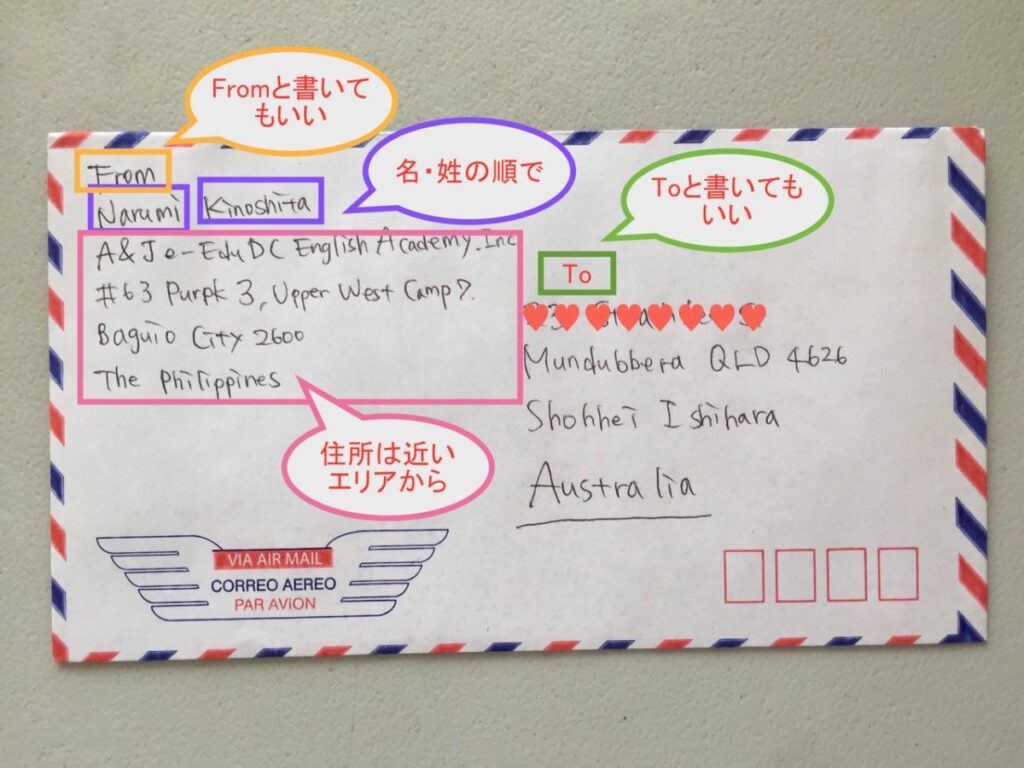 Fromと書いて
もいい
名・姓の順で
Toと書いても
いい
From
Narumi Kinoshita
A&J e-EduDC English Academy.Inc
#63 Purpk 3, Upper West Camp 7.
Baguio City 2600
The Philippines
To
Mundubbera QLD 4626
Shohhei Ishihara
Australia
住所は近い
エリアから
VIA AIR MAIL
CORREO AEREO
PAR AVION